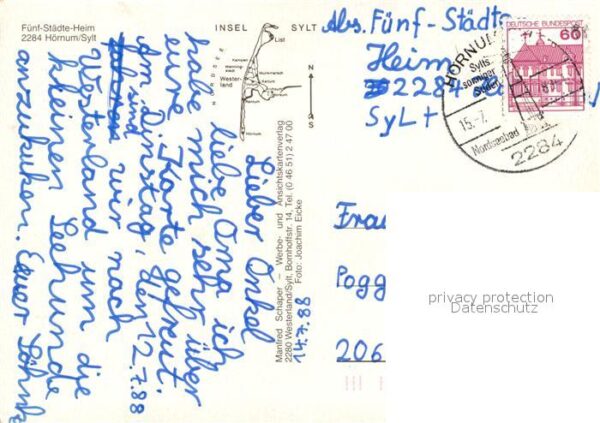 Fünf-Städte-Heim
2284 Hörnum/Sylt
INSEL SYLT
NORDSEE
List
Kampen
Westerland
Hörnum
N
S
Manfred Schaper - Werbe- und Ansichtskartenverlag
2280 Westerland/Sylt, Bomhoffstr. 14, Tel. (0 46 51) 2 47 00
Foto: Joachim Eicke
14.7.88
Lieber Onkel
liebe Oma ich
habe mich sehr über
eure Karte gefreut.
Am Dinstag, den 12.7.88
sind wir nach
Westerland um die
kleinen Seehunde
anzukuken. Euer
Abs. Fünf-Städte
Heim
2284
Sylt
DEUTSCHE BUNDESPOST
60
HÖRNUM
Sylts
sonniger
Süden
15.-7.
Nordseebad
2284
Frau
Pogg
206
privacy protection
Datenschutz